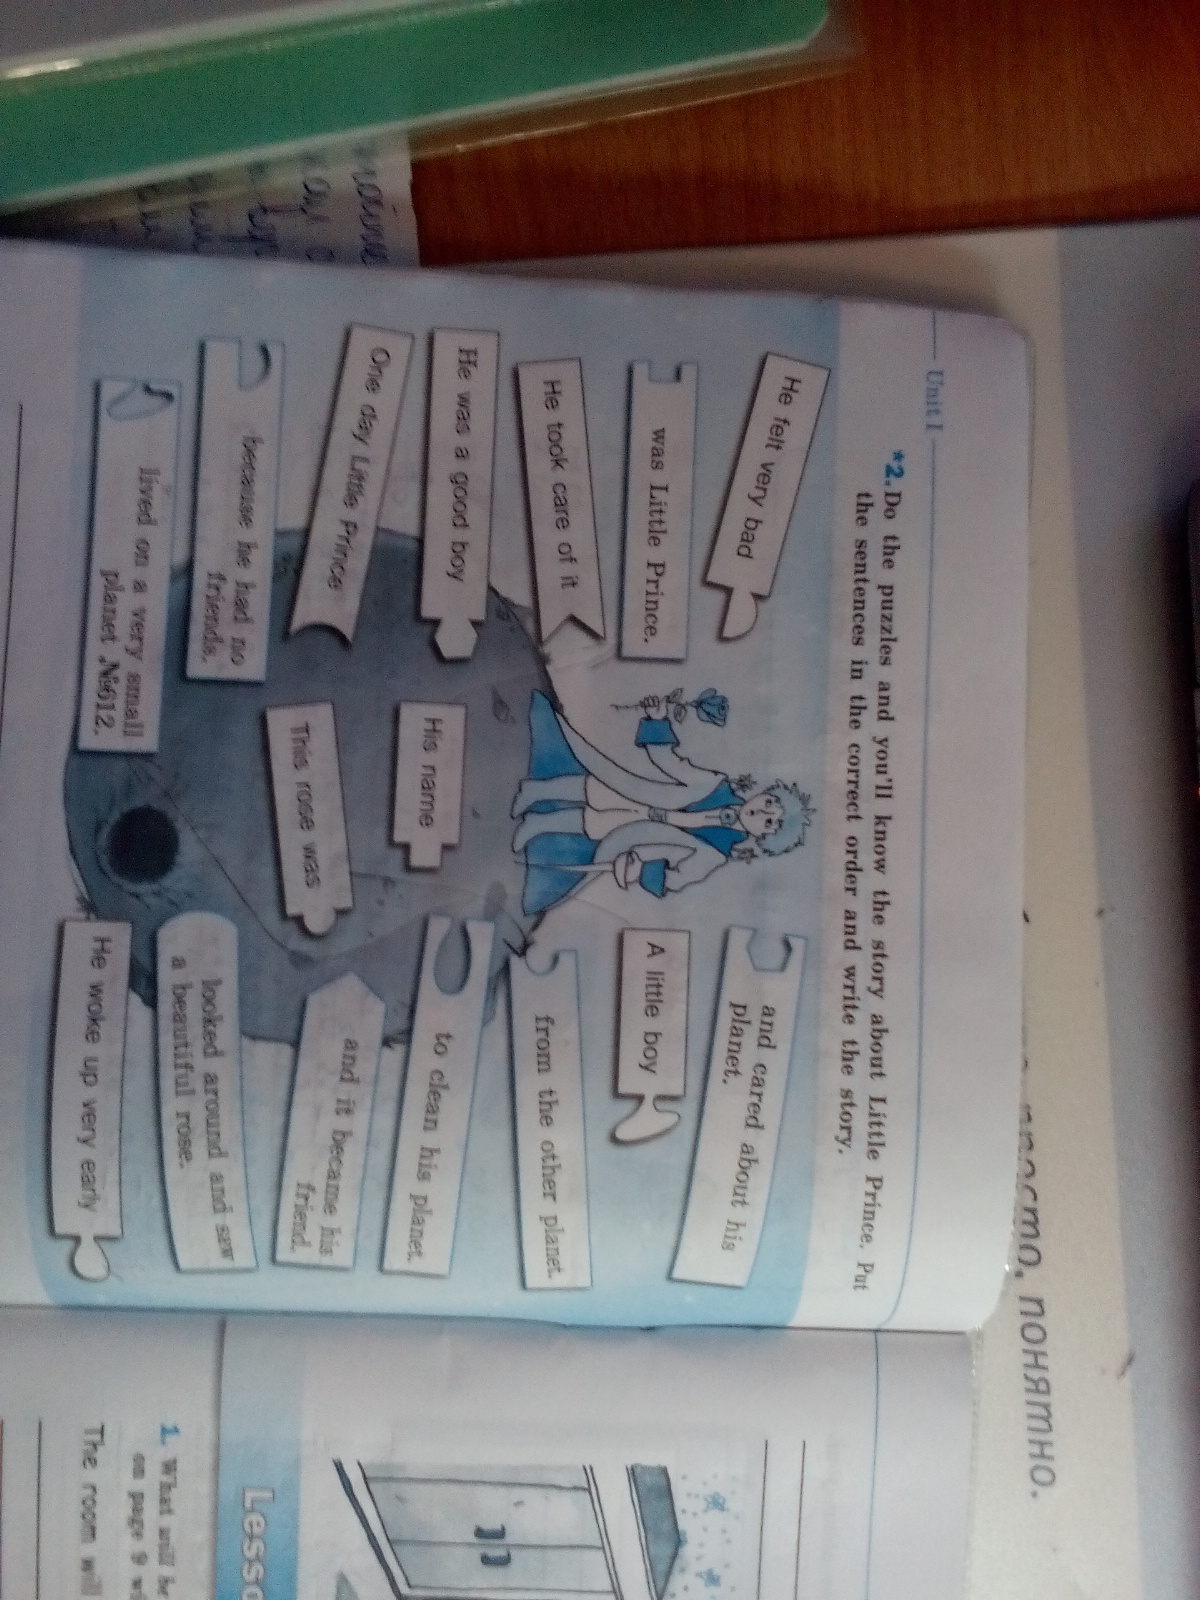 Unit 1
*2. Do the puzzles and you'll know the story about Little Prince. Put
the sentences in the correct order and write the story.
He felt very bad
and cared about his
planet.
was Little Prince.
A little boy
He took care of it
from the other planet.
He was a good boy
His name
to clean his planet.
One day Little Prince
This rose was
and it became his
friend.
because he had no
friends.
looked around and saw
a beautiful rose.
lived on a very small
planet №612.
He woke up very early
понятно.
Lesso
1. What will be
on page 9 wi
The room will